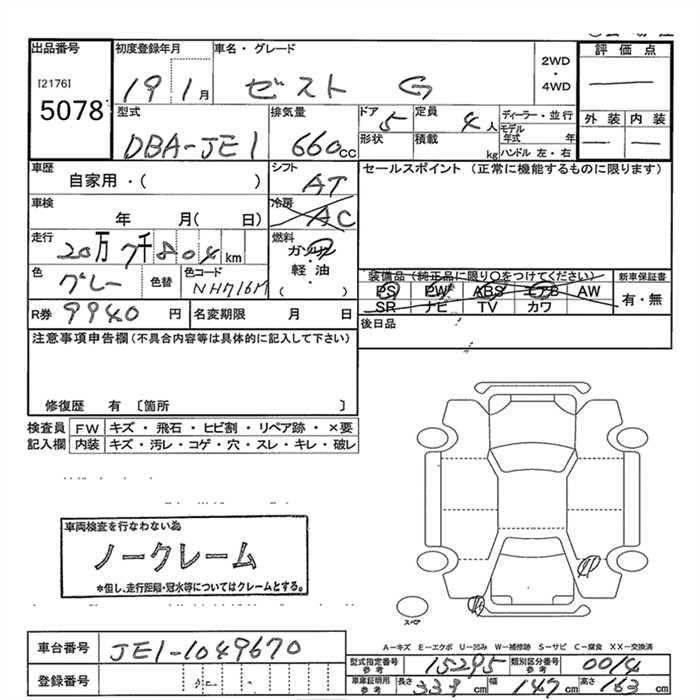 出品番号 初度登録年月 車名・グレード 2WD・4WD 評価点
[2176] 5078 19 1月 ゼスト G
型式 排気量 ドア 定員 ディーラー・並行 外装 内装
DBA-JE1 660cc 5 4人 モデル年式 年
形状 積載 kg ハンドル 左・右
車歴 シフト セールスポイント (正常に機能するものに限ります)
自家用・( ) AT
車検 冷房
年 月( 日) AC
走行 燃料
20万7千804km ガソリン・軽油・( )
色 色替 色コード 装備品 (純正品に限り〇をつけてください) 新車保証書
グレー NH716M PS PW ABS エアB AW 有・無
SR ナビ TV カワ
R券 9940円 名変期限 月 日 後日品
注意事項申告欄 (不具合内容等は具体的に記入して下さい)
修復歴 有 〔箇所 〕
検査員 FW キズ・飛石・ヒビ割・リペア跡・×要
記入欄 内装 キズ・汚レ・コゲ・穴・スレ・キレ・破レ
車両検査を行なわない為
ノークレーム
*但し、走行距離・冠水等についてはクレームとする。
スペア
A-キズ E-エクボ U-凹み W-補修跡 S-サビ C-腐食 XX-交換済
車台番号 JE1-1049670
型式指定番号 参考 15295 類別区分番号 参考 0014
登録番号
車庫証明用 参考 長さ 339cm 幅 147cm 高さ 163cm